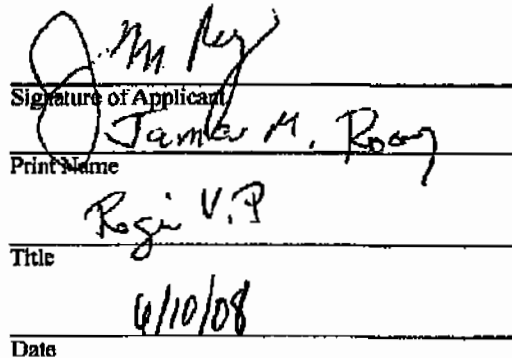 Signature of Applicant
James M.
Print Name
V.P
Title
6/10/08
Date